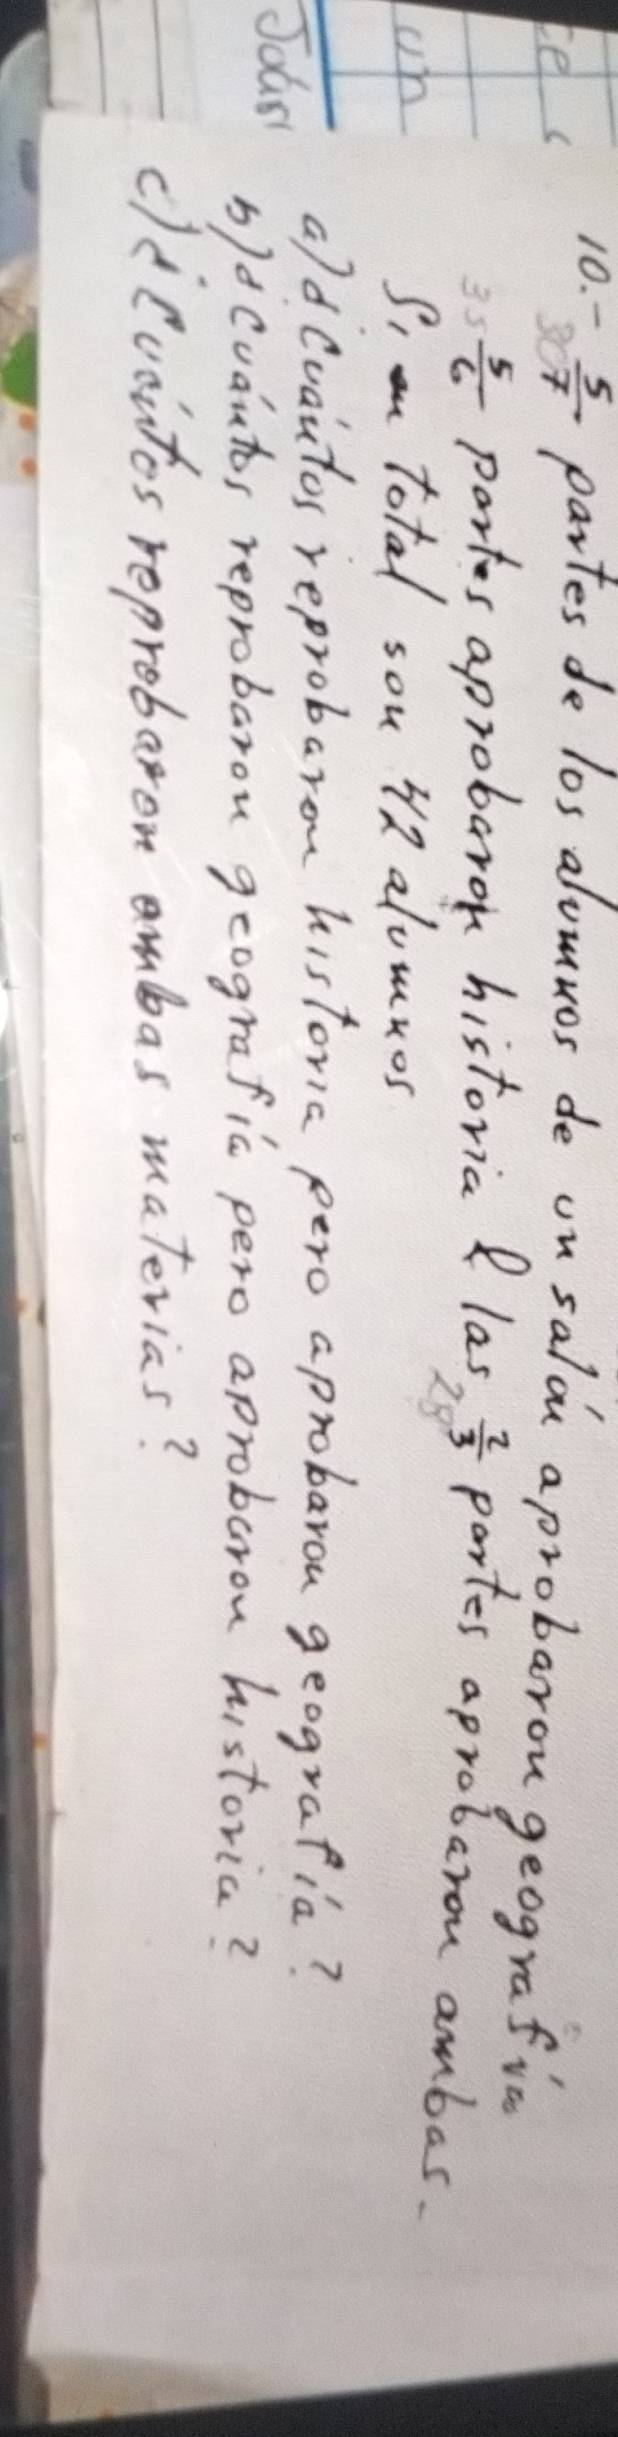 es
un
Jousi
10.- 5/7 partes de los alumnos de un salón aprobaron geografía
30
5/6 partes aprobaron historia & las 2/3 partes aprobaron ambas.
35
28
Si en total son 42 alumnos
a) ¿Cuántos reprobaron historia pero aprobaron geografía?
b) ¿Cuántos reprobaron geografía pero aprobaron historia?
c) ¿Cuántos reprobaron ambas materias?